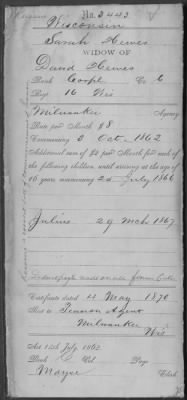 No. 3443
Wisconsin
Sarah Hewes
WIDOW OF
David Hewes
Rank Corpl Co C
Regt 16 Wis
Milwaukee Agency
Rate per Month $8
Commencing 3 Oct. 1862
Additional sum of $2 per Month for each of
the following children, until arriving at the age of
16 years, commencing 25 July 1866
Julius 29 Mch 1867
Certificate dated 4 May 1870
Sent to Pension Agent
Milwaukee
Wis
Act 14th July, 1862
Book Vol. Page
Mayse Clerk